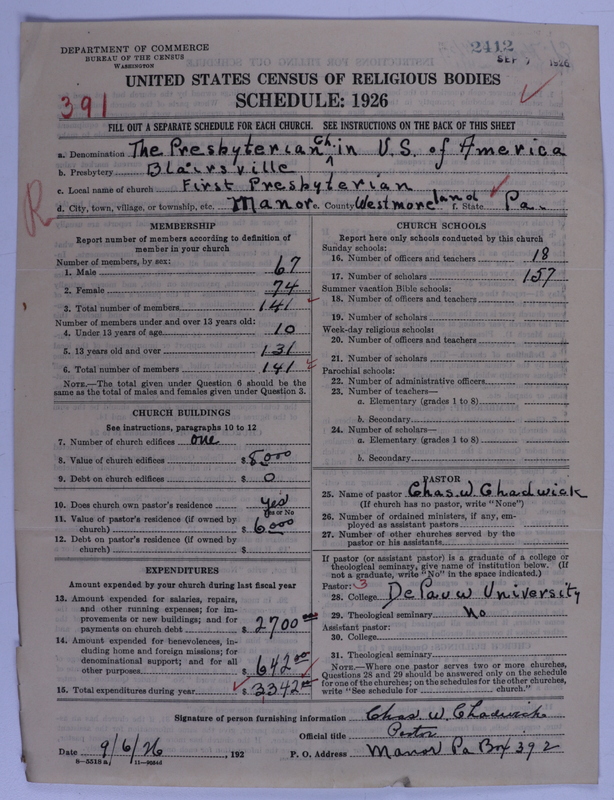 2412
DEPARTMENT OF COMMERCE
BUREAU OF THE CENSUS
WASHINGTON
SEP 1926
UNITED STATES CENSUS OF RELIGIOUS BODIES
391
SCHEDULE: 1926
FILL OUT A SEPARATE SCHEDULE FOR EACH CHURCH. SEE INSTRUCTIONS ON THE BACK OF THIS SHEET
a. Denomination The Presbyterian Ch. in U.S. of America
b. Presbytery Blairsville
c. Local name of church First Presbyterian
R
d. City, town, village, or township, etc. Manor e. County Westmoreland f. State Pa.
MEMBERSHIP
Report number of members according to definition of
member in your church
Number of members, by sex:
1. Male 67
2. Female 74
3. Total number of members 141
Number of members under and over 13 years old:
4. Under 13 years of age 10
5. 13 years old and over 131
6. Total number of members 141
NOTE.—The total given under Question 6 should be the
same as the total of males and females given under Question 3.
CHURCH BUILDINGS
See instructions, paragraphs 10 to 12
7. Number of church edifices one
8. Value of church edifices $ 8,000
9. Debt on church edifices $ 0
10. Does church own pastor's residence yes
Yes or No
11. Value of pastor's residence (if owned by
church) $ 6,000
12. Debt on pastor's residence (if owned by
church) $
EXPENDITURES
Amount expended by your church during last fiscal year
13. Amount expended for salaries, repairs,
and other running expenses; for im-
provements or new buildings; and for
payments on church debt $ 2700 00
14. Amount expended for benevolences, in-
cluding home and foreign missions; for
denominational support; and for all
other purposes $ 642 00
15. Total expenditures during year $ 3342 00
CHURCH SCHOOLS
Report here only schools conducted by this church
Sunday schools:
16. Number of officers and teachers 18
17. Number of scholars 157
Summer vacation Bible schools:
18. Number of officers and teachers
19. Number of scholars
Week-day religious schools:
20. Number of officers and teachers
21. Number of scholars
Parochial schools:
22. Number of administrative officers
23. Number of teachers—
a. Elementary (grades 1 to 8)
b. Secondary
24. Number of scholars—
a. Elementary (grades 1 to 8)
b. Secondary
PASTOR
25. Name of pastor Chas. W. Chadwick
(If church has no pastor, write "None")
26. Number of ordained ministers, if any, em-
ployed as assistant pastors
27. Number of other churches served by the
pastor or his assistants
If pastor (or assistant pastor) is a graduate of a college or
theological seminary, give name of institution below. (If
not a graduate, write "No" in the space indicated.)
Pastor: 3
28. College De Pauw University
29. Theological seminary No
Assistant pastor:
30. College
31. Theological seminary
NOTE.—Where one pastor serves two or more churches,
Questions 28 and 29 should be answered only on the schedule
for one of the churches; on the schedules for the other churches,
write "See schedule for church."
Signature of person furnishing information Chas. W. Chadwick
Official title Pastor
Date 9/6/26, 192 P. O. Address Manor Pa Box 392
8—5518a 11—9054d